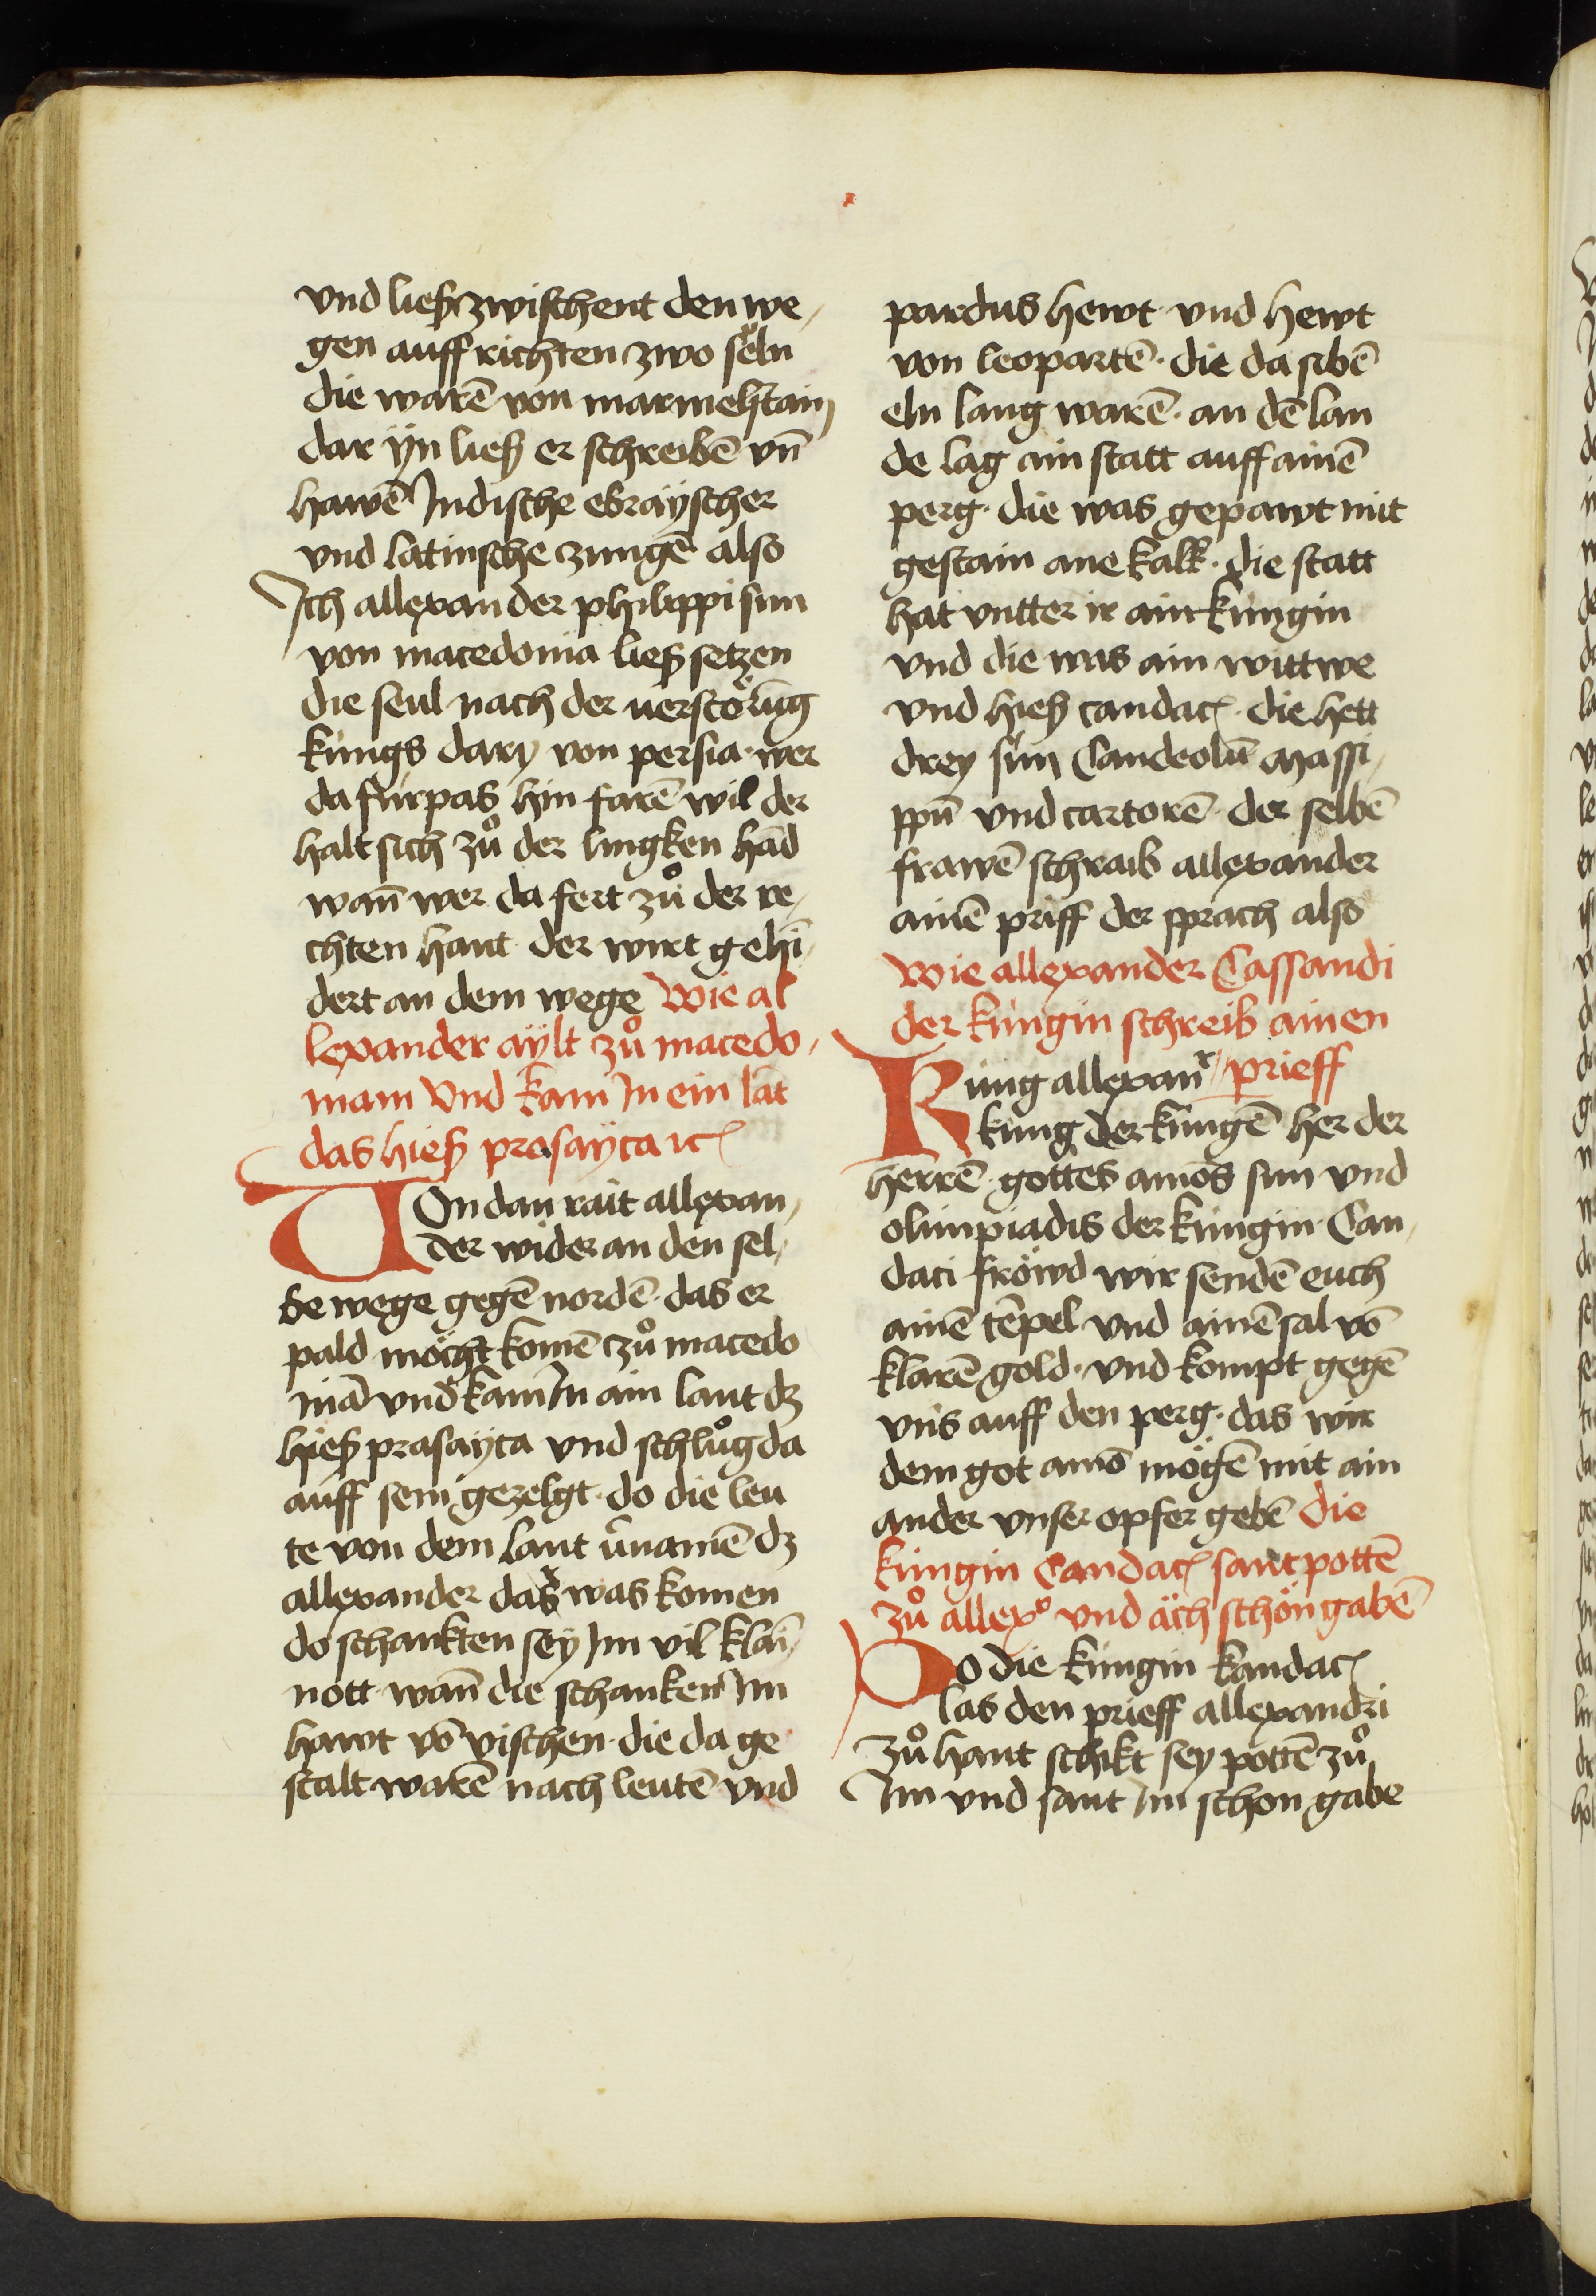 vnd ließ zwischent den we¬
gen auff richten zwo seͤln
die warē von marmelstain
dar ÿn ließ er schreibē vn̄
hawē Indische ebraÿscher
vnd latinsche zungē also
Ich allexander philippi sun
von macedonia ließ setzen
die seul nach der uerstörūg
kungs dary von persia· wer
da fúrpas hin farē wil der
halt sich zuͦ der lingken hād
wan̄ wer da fert zuͦ der re¬
chten hant der wirt gehī¬
dert an dem wege Wie al
lexander aÿlt zuͦ macedo¬
niam vnd kam In ein lāt
das hieß prasaÿca ꝛc
Von dan rait allexan¬
der wider an den sel¬
be wege gegē nordē· das er
pald möcht komē zuͦ macedo
niā vnd kam In ain lant dz
hieß prasaÿca vnd schluͦg da
auff sein gezelgt· do die leu
te von dem lant v̄namē dz
allexander das was komen
do schankten seÿ Im vil klai¬
nott wan̄ die schanken Im
hawt vō vischen· die da ge
stalt warē nach leutē vnd
pardus hewt· vnd hewt
von leopartē· die da sibē
eln lang warē· an dē lan
de lag ain statt auff ainē
perg· die was gepawt mit
gestain ane kalk· die statt
hat vntter ir ain kúngin
vnd die was ain wittwe
vnd hieß candac̄· die hett
drey sún Candeolū Massi¬
ppū vnd cartorē· der selbē
frawē schraib allexander
ainē priff der sprach also
Wie allexander Cassandi
der kúngin schreib ainen
prieff
Kúng allexanr
kúng der kúngē her der
herrē· gottes amos sun vnd
olimpiadis der kúngin· Can¬
daci fröwd wir sendē euch
ainē tēpel vnd ainē sal vō
klarē gold· vnd kompt gegē
vns auff den perg· das wir
dem got amō mögē mit ain
ander vnser opfer gebē die
kúngin Candac̄ sant pottē
zuͦ allexo vnd äch schön gabē
Do die kúngin kandac̄
las den prieff allexandri
zuͦ hant schikt sey pottē zuͦ
Im vnd sant Im schon gabe